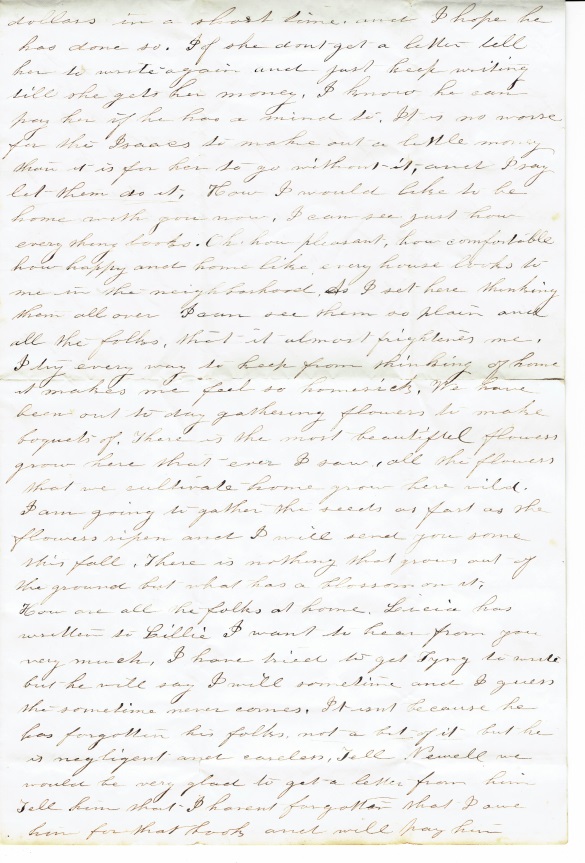 dollars in a short time. and I hope he
has done so. If she dont get a letter tell
her to write again and just keep writing
till she gets her money. I know he can
pay her if he has a mind to. It is no worse
for the Isaacs to make out a little money
than it is for her to go without it, and I say
let them do it. How I would like to be
home with you now. I can see just how
everything looks. Oh how pleasant, how comfortable
how happy and home like every house looks to
me in the neighborhood. As I set here thinking
them all over I can see them so plain and
all the folks, that it almost frightens me.
I try every way to keep from thinking of home
it makes me feel so homesick. We have
been out to day gathering flowers to make
boquets of. There is the most beautiful flowers
grow here that ever I saw, all the flowers
that we cultivate home grow here wild.
I am going to gather the seeds as fast as the
flowers ripen and I will send you some
this fall. There is nothing that grows out of
the ground but what has a blossom on it.
How are all he folks at home. Licia has
written to Lillie I want to hear from you
very much. I have tried to get Tyng to write
but he will say I will sometime and I guess
the sometime never comes. It isnt because he
has forgotten his folks, not a bit of it but he
is negligent and careless. Tell Newell we
would be very glad to get a letter from him
Tell him that I havent forgotten that I owe
him for that book and will pay him